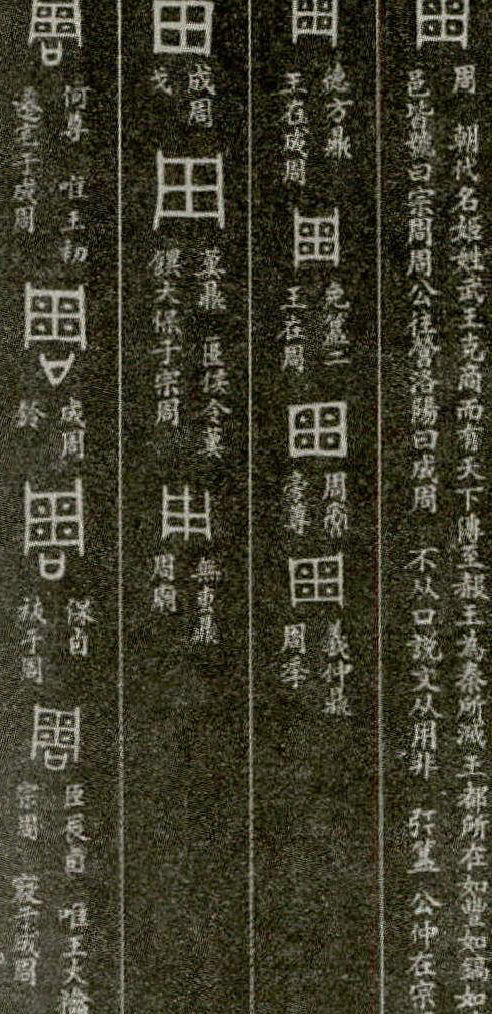 周 朝代名姬姓武王克商而有天下傳至赧王為秦所滅王都所在如豐如鎬如
邑皆稱曰宗周周公往營洛陽曰成周 不从口說文从用非 簋 公仲在宗
德方鼎
王在成周
免簋二
王在周
周免
旁尊
義仲鼎
周季
成周
戈
堇鼎 匽侯令堇
饎大保于宗周
無叀鼎
周廟
何尊 唯王初
遷宅于成周
成周
鈴
保卣
祓于周
臣辰卣 唯王大
宗周 于成周